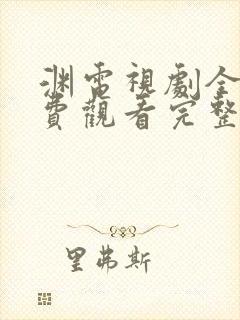 渊電視劇全
費觀看完整
里弗斯